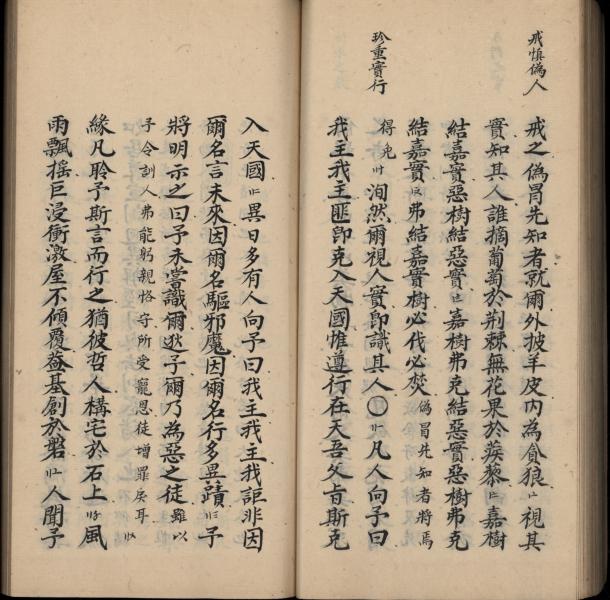 戒慎偽人
戒之偽冒先知者就爾外披羊皮內為貪狼視其
實知其人誰摘葡萄於荊棘無花果於蒺藜嘉樹
結嘉實惡樹結惡實嘉樹弗克結惡實惡樹弗克
結嘉實弗結嘉實樹必伐必焚偽冒先知者將焉
珍重實行
得免洵然爾視人實即識其人〇凡人向予曰
我主我主匪即克入天國惟遵行在天吾父旨斯克
入天國異日多有人向予曰我主我主我詎非因
爾名言未來因爾名驅邪魔因爾名行多異蹟予
將明示之曰予未嘗識爾逖予爾乃為惡之徒雖以
予令訓人弗能躬親恪守所受寵恩徒增罪戾耳
緣凡聆予斯言而行之猶彼哲人構宅於石上風
雨飄搖巨浸衝激屋不傾覆葢基創於磐人聞予